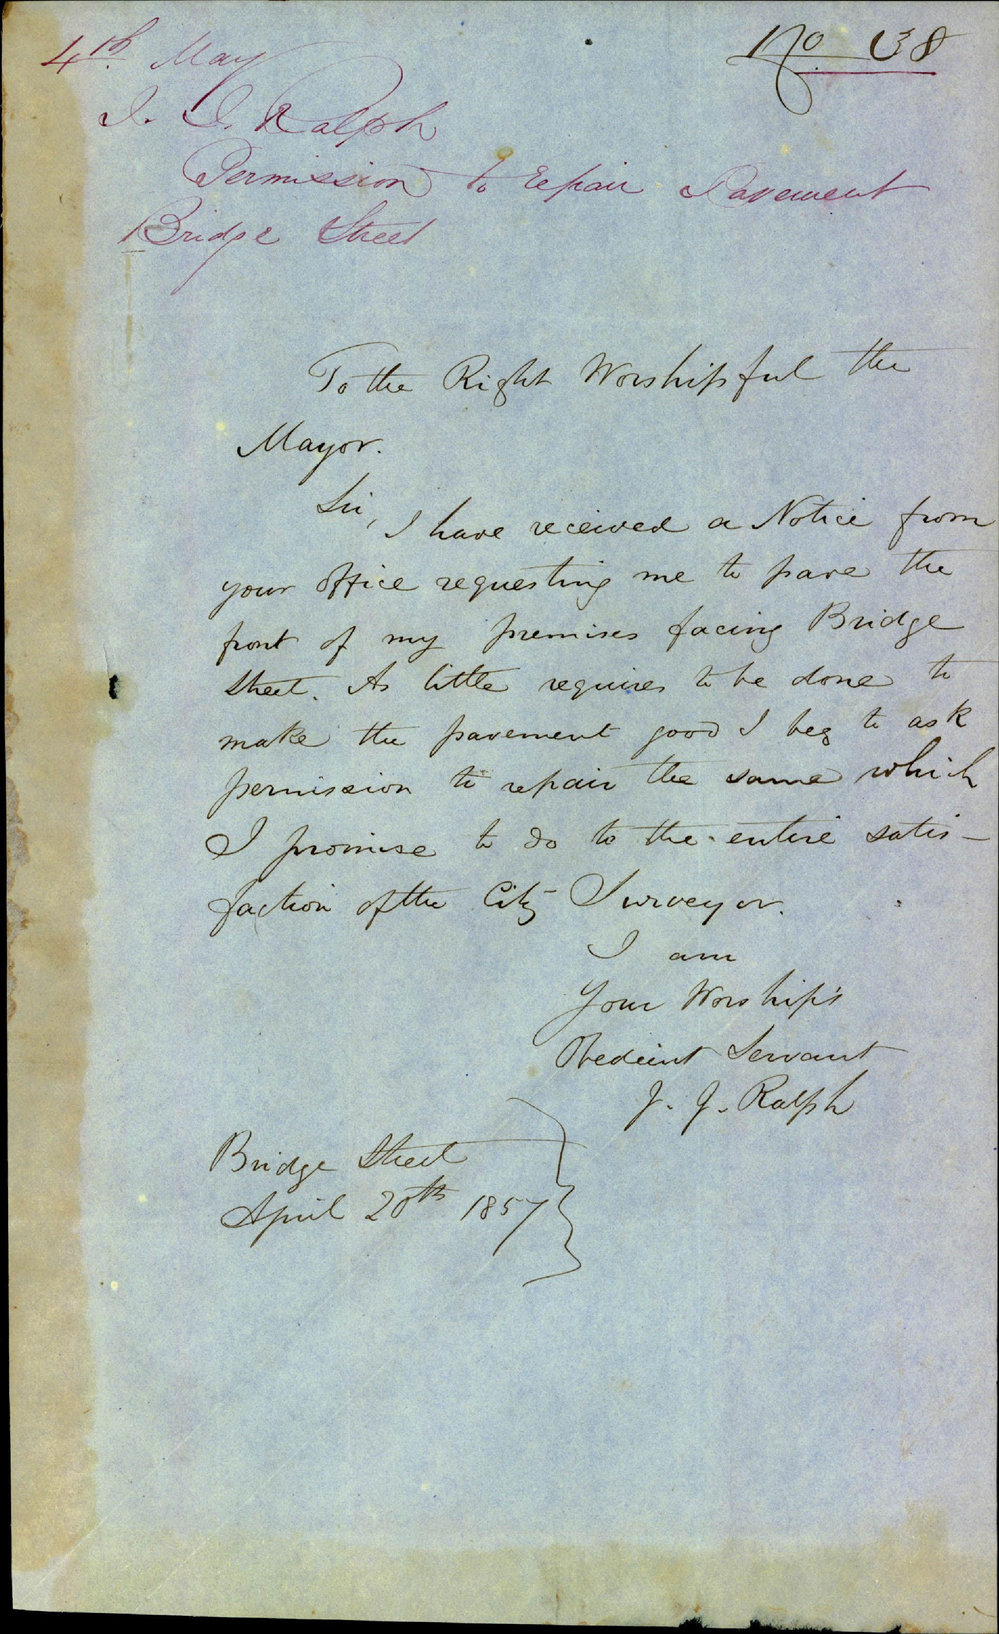 No 38
4th. May
J. J. Ralph
Permission to repair Pavement
Bridge Street
To the Right Worshipful the
Mayor.
Sir,
I have received a Notice from
your office requesting me to pave the
front of my premises facing Bridge
Street. As little requires to be done to
make the pavement good I beg to ask
permission to repair the same which
I promise to do to the entire satis-
faction of the City Surveyor.
I am
Your Worship's
Obedient Servant
J. J. Ralph
Bridge Street
April 20th 1857